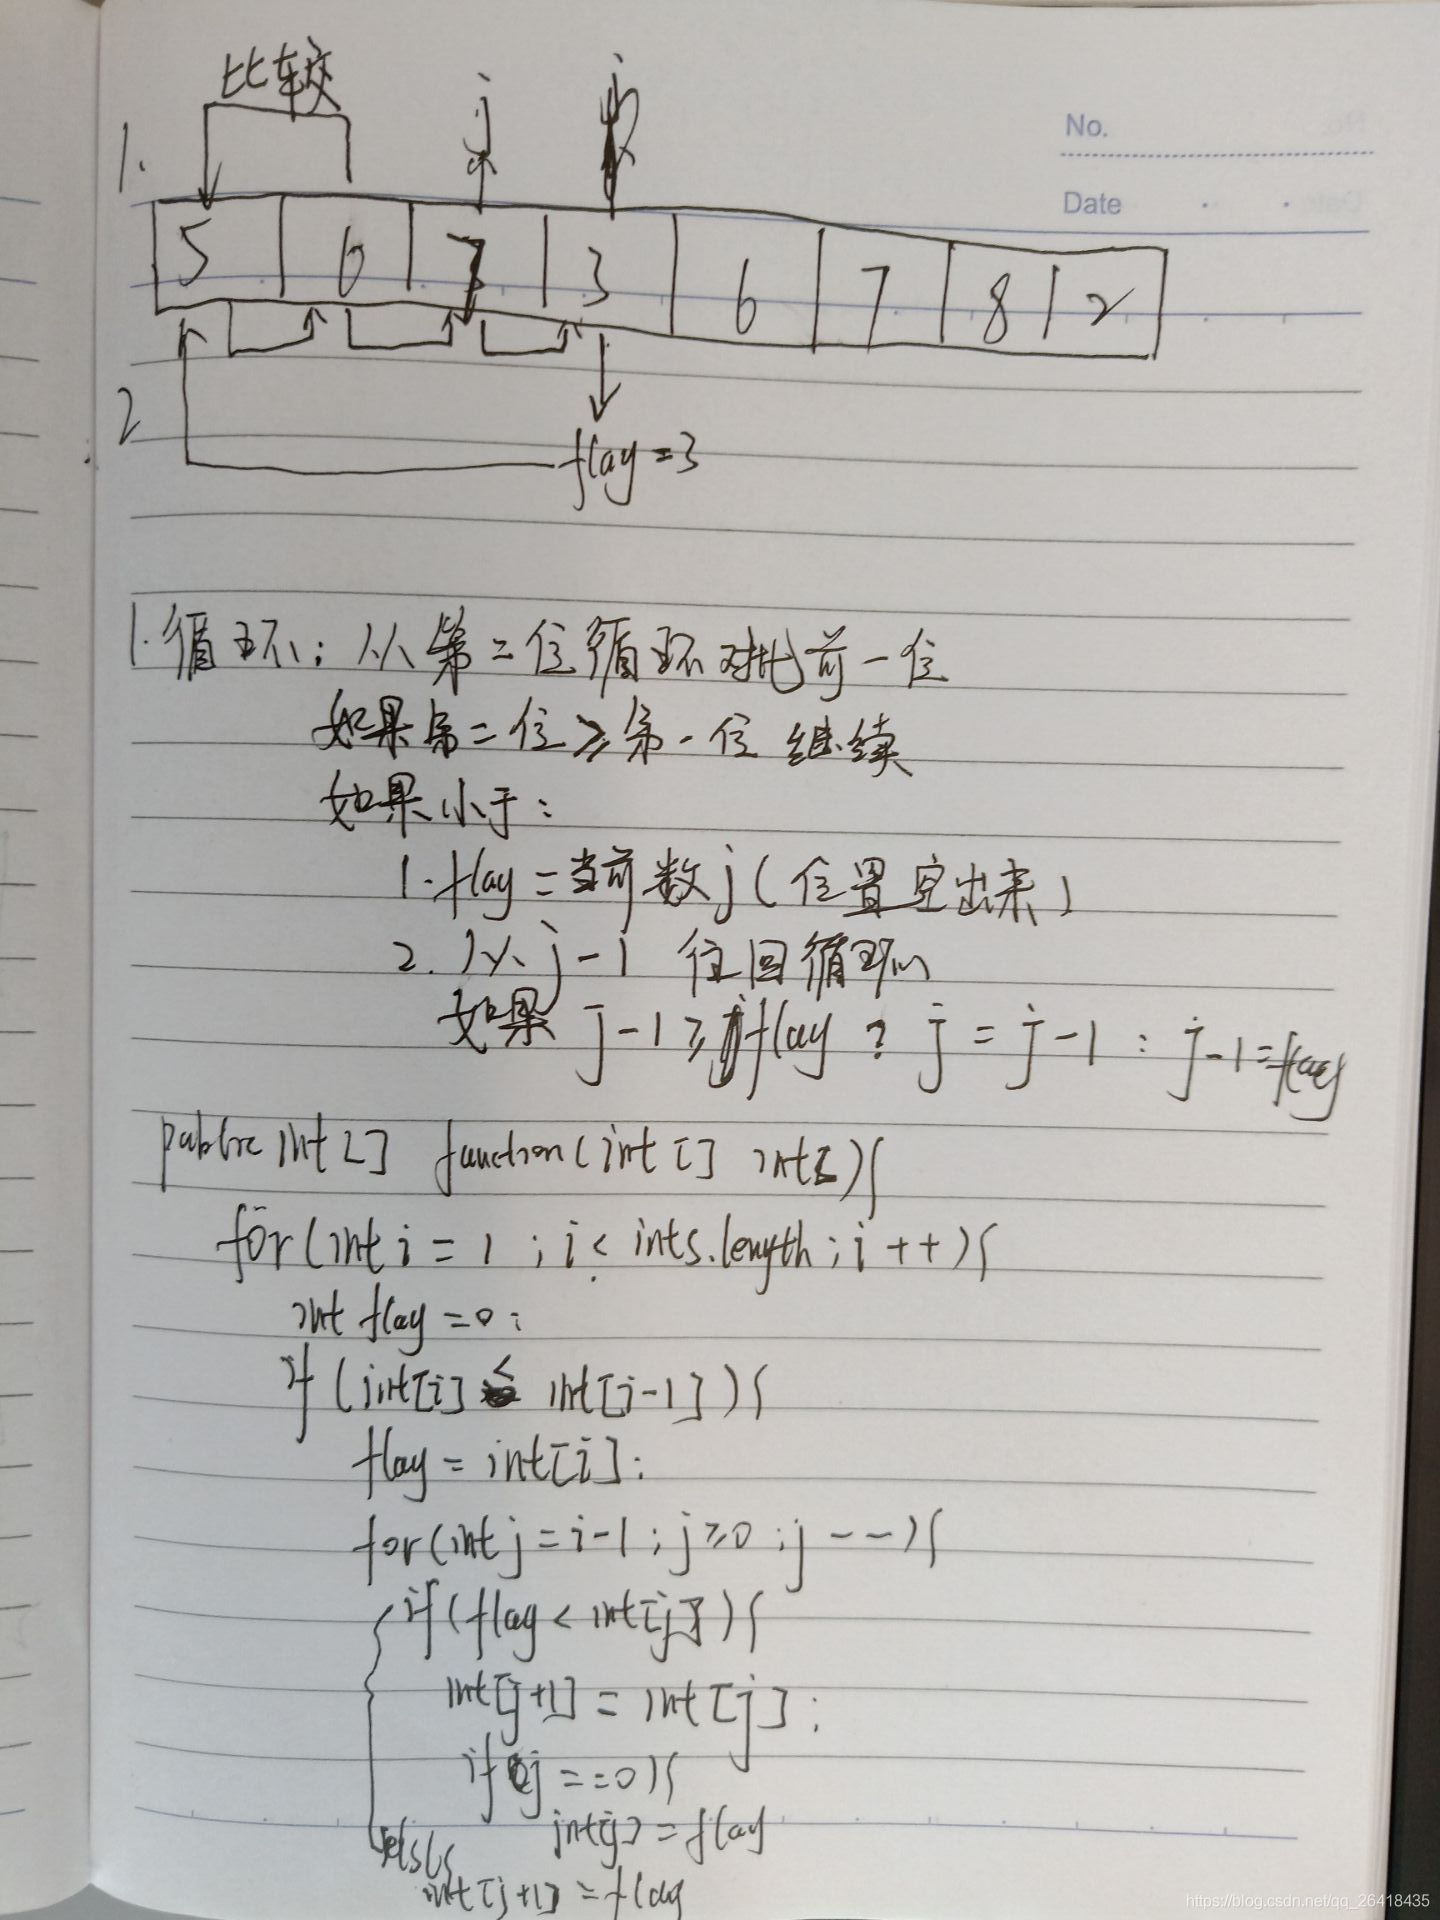 比较
j
1.
No.
Date
5 6 7 3 6 7 8 2
2
flag=3
1.循环:从第二位循环对比前一位
如果第二位≥第一位 继续
如果小于:
1.flag=当前数j(位置空出来)
2.从j-1 往回循环
如果 j-1≥flag ? j = j-1 : j-1=flag
public int[] function(int[] ints){
for(int i = 1 ; i < ints.length ; i ++){
int flag=0;
if (int[i] < int[i-1]){
flag = int[i];
for(int j = i-1 ; j≥0 ; j --){
if(flag < int[j]){
int[j+1] = int[j];
if(j ==0){
int[j] = flag
else
int[j+1] = flag
https://blog.csdn.net/qq_26418435